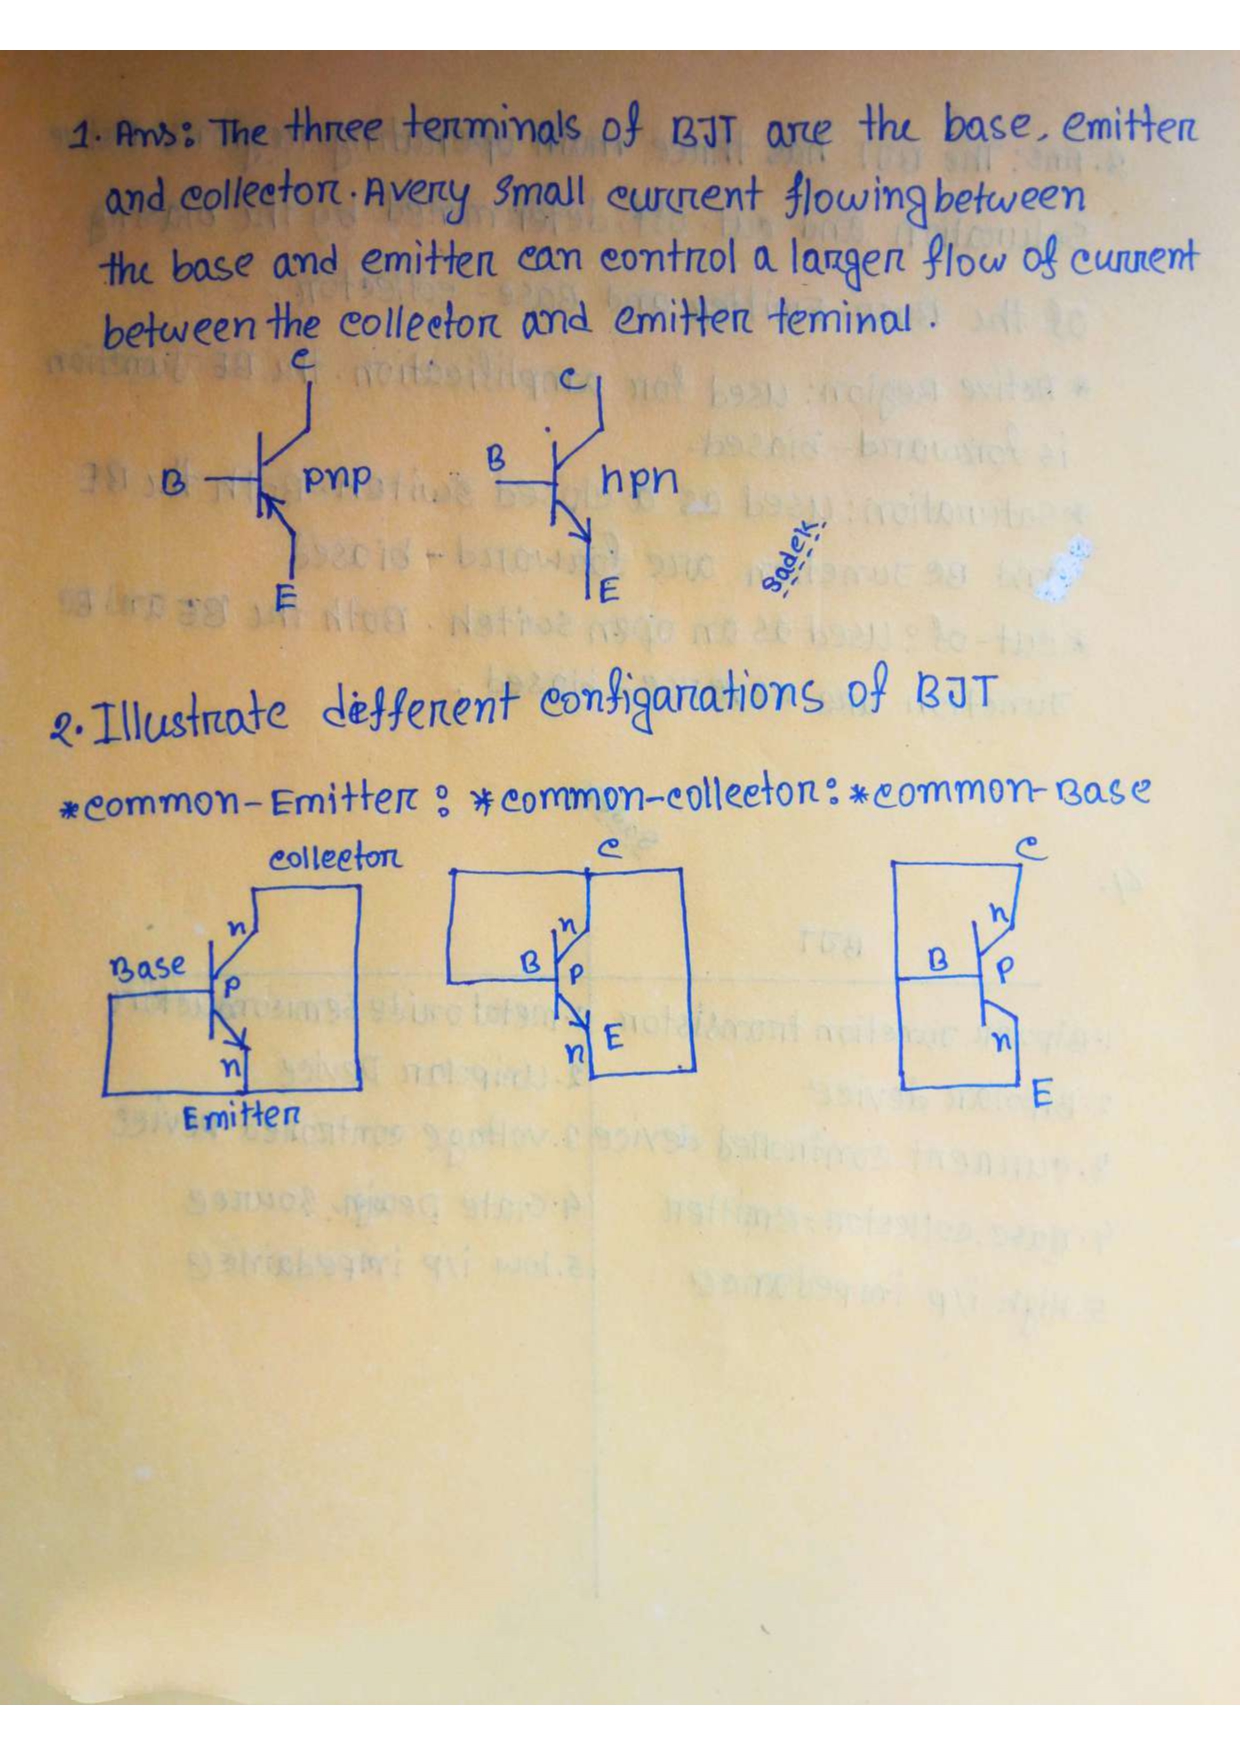 1. Ans: The three terminals of BJT are the base, emitter
and collector. A very small current flowing between
the base and emitter can control a larger flow of current
between the collector and emitter teminal.
C C
B pnp B npn
E E
Sadek
2. Illustrate different configarations of BJT
*common-Emitter: *common-collector: *common-Base
collector C C
n n n
Base B B
P P P
n n E n
Emitter E